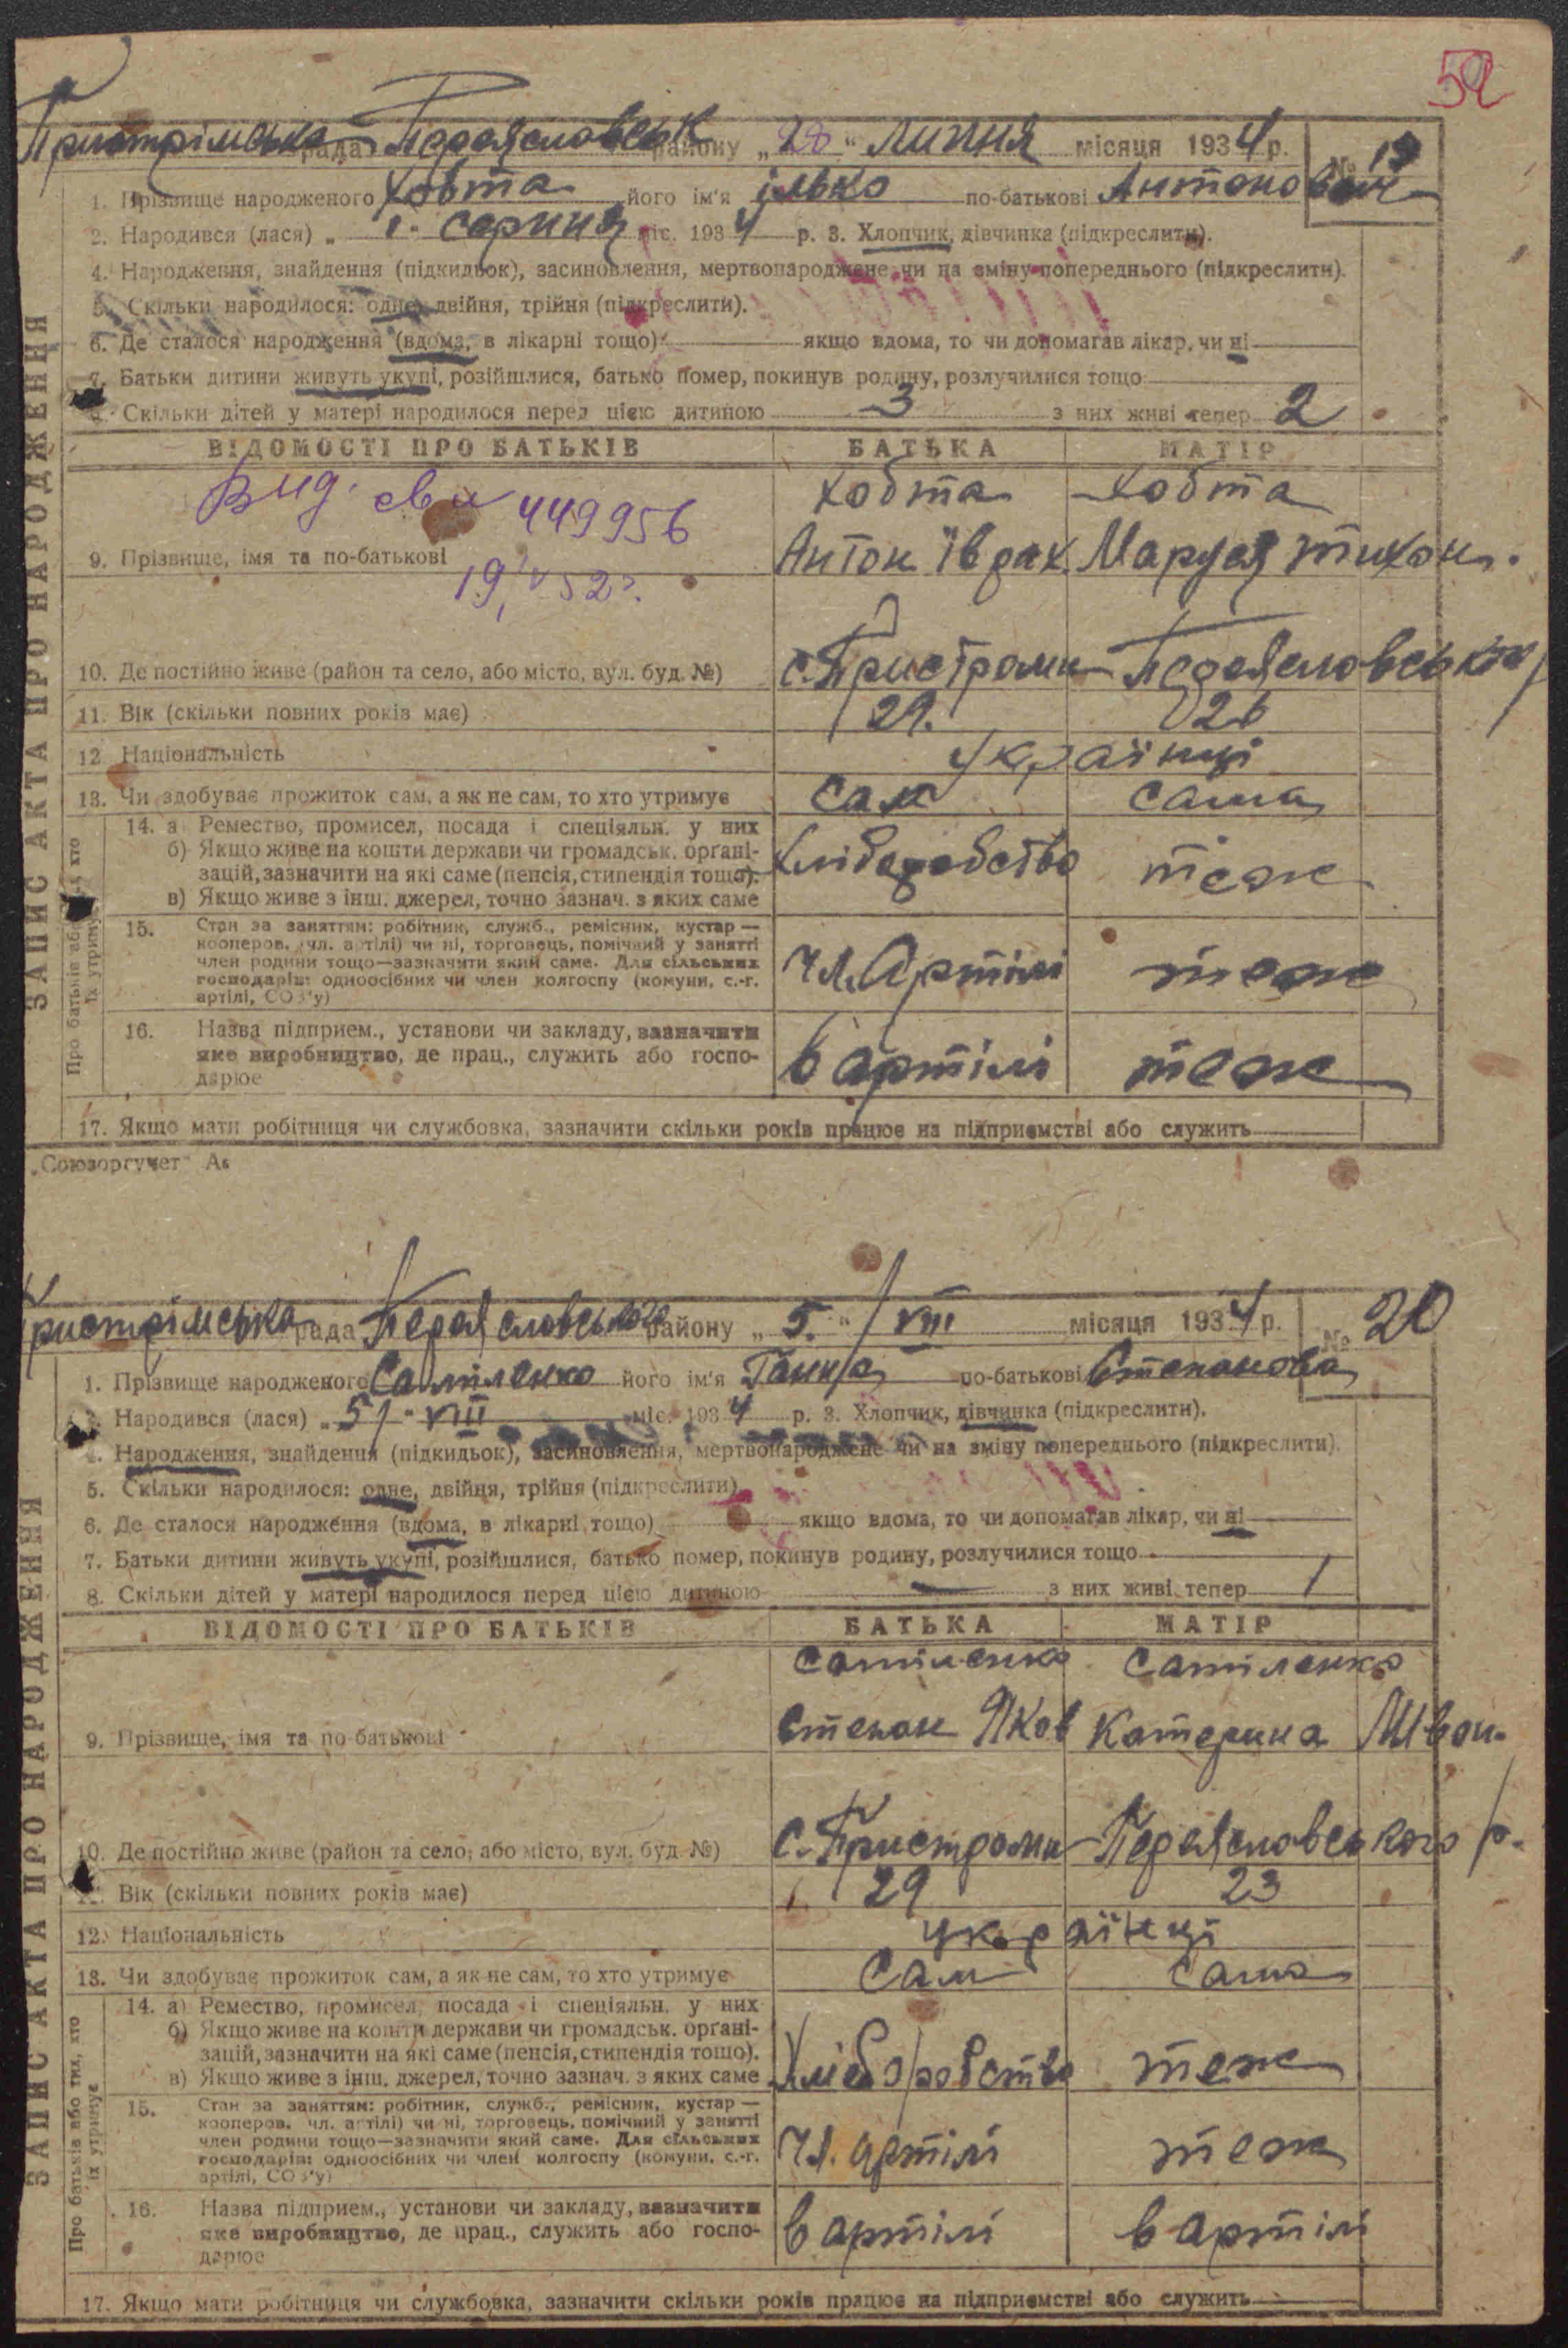 52
Пристрімська рада Переяславськ району „28“ Липня місяця 1934 р. № 19
1. Прізвище народженого Ховта його ім'я ілько по-батькові Антонович
2. Народився (лася) „ 1. серпня міс. 1934 р. 3. Хлопчик, дівчинка (підкреслити).
4. Народження, знайдення (підкидьок), засиновлення, мертвонароджене чи на зміну попереднього (підкреслити).
5. Скільки народилося: одне, двійня, трійня (підкреслити).
6. Де сталося народження (вдома, в лікарні тощо) якщо вдома, то чи допомагав лікар, чи ні
7. Батьки дитини живуть укупі, розійшлися, батько помер, покинув родину, розлучилися тощо
8. Скільки дітей у матері народилося перед цією дитиною 3 з них живі тепер 2
ЗАПИС АКТА ПРО НАРОДЖЕННЯ
ВІДОМОСТІ ПРО БАТЬКІВ БАТЬКА МАТІР
Вид. св 449956
19/V 52 г.
Ховта Ховта
9. Прізвище, імя та по-батькові Антон Івдак. Маруся Тихон.
10. Де постійно живе (район та село, або місто, вул. буд. №) с. Пристроми Переяславськог
11. Вік (скільки повних років має) 29. 26
12 Національність Українці
13. Чи здобуває прожиток сам, а як не сам, то хто утримує сам сама
Про батьків або тих, хто їх утримує
14. а Ремество, промисел, посада і спеціяльн. у них
б) Якщо живе на кошти держави чи громадськ. орґані-
зацій, зазначити на які саме (пенсія, стипендія тощо).
в) Якщо живе з інш. джерел, точно зазнач. з яких саме
Хліборобство теж
15. Стан за заняттям: робітник, служб., ремісник, кустар —
кооперов. (чл. артілі) чи ні, торговець, помічний у занятті
член родини тощо—зазначити який саме. Для сільських
господарів: одноосібних чи член колгоспу (комуни, с.-г.
артілі, СОЗ'у)
Чл. Артілі теж
16. Назва підприєм., установи чи закладу, зазначити
яке виробництво, де прац., служить або госпо-
дарює
в артілі теж
17. Якщо мати робітниця чи службовка, зазначити скільки років працює на підприємстві або служить
„Союзоргучет“
Пристрімська рада Переяславського району „5.“ VIII місяця 1934 р. № 20
1. Прізвище народженого Сатіленко його ім'я Ганна по-батькові Степанова
2. Народився (лася) „5/“ VIII міс. 1934 р. 3. Хлопчик, дівчинка (підкреслити).
4. Народження, знайдення (підкидьок), засиновлення, мертвонароджене чи на зміну попереднього (підкреслити).
5. Скільки народилося: одне, двійня, трійня (підкреслити)
6. Де сталося народження (вдома, в лікарні тощо) якщо вдома, то чи допомагав лікар, чи ні
7. Батьки дитини живуть укупі, розійшлися, батько помер, покинув родину, розлучилися тощо
8. Скільки дітей у матері народилося перед цією дитиною — з них живі тепер 1
ЗАПИС АКТА ПРО НАРОДЖЕННЯ
ВІДОМОСТІ ПРО БАТЬКІВ БАТЬКА МАТІР
Сатіленко Сатіленко
9. Прізвище, імя та по-батькові Степан Яков Катерина
10. Де постійно живе (район та село, або місто, вул. буд. №) с. Пристроми Переяславського р.
11. Вік (скільки повних років має) 29 23
12. Національність українці
13. Чи здобуває прожиток сам, а як не сам, то хто утримує Сам сама
Про батьків або тих, хто їх утримує
14. а) Ремество, промисел, посада і спеціяльн. у них
б) Якщо живе на кошти держави чи громадськ. орґані-
зацій, зазначити на які саме (пенсія, стипендія тощо).
в) Якщо живе з інш. джерел, точно зазнач. з яких саме
Хліборобство теж
15. Стан за заняттям: робітник, служб., ремісник, кустар —
кооперов. чл. артілі) чи ні, торговець, помічний у занятті
член родини тощо—зазначити який саме. Для сільських
господарів: одноосібних чи член колгоспу (комуни, с.-г.
артілі, СОЗ'у)
Чл. артілі теж
16. Назва підприєм., установи чи закладу, зазначити
яке виробництво, де прац., служить або госпо-
дарює
в артілі в артілі
17. Якщо мати робітниця чи службовка, зазначити скільки років працює на підприємстві або служить